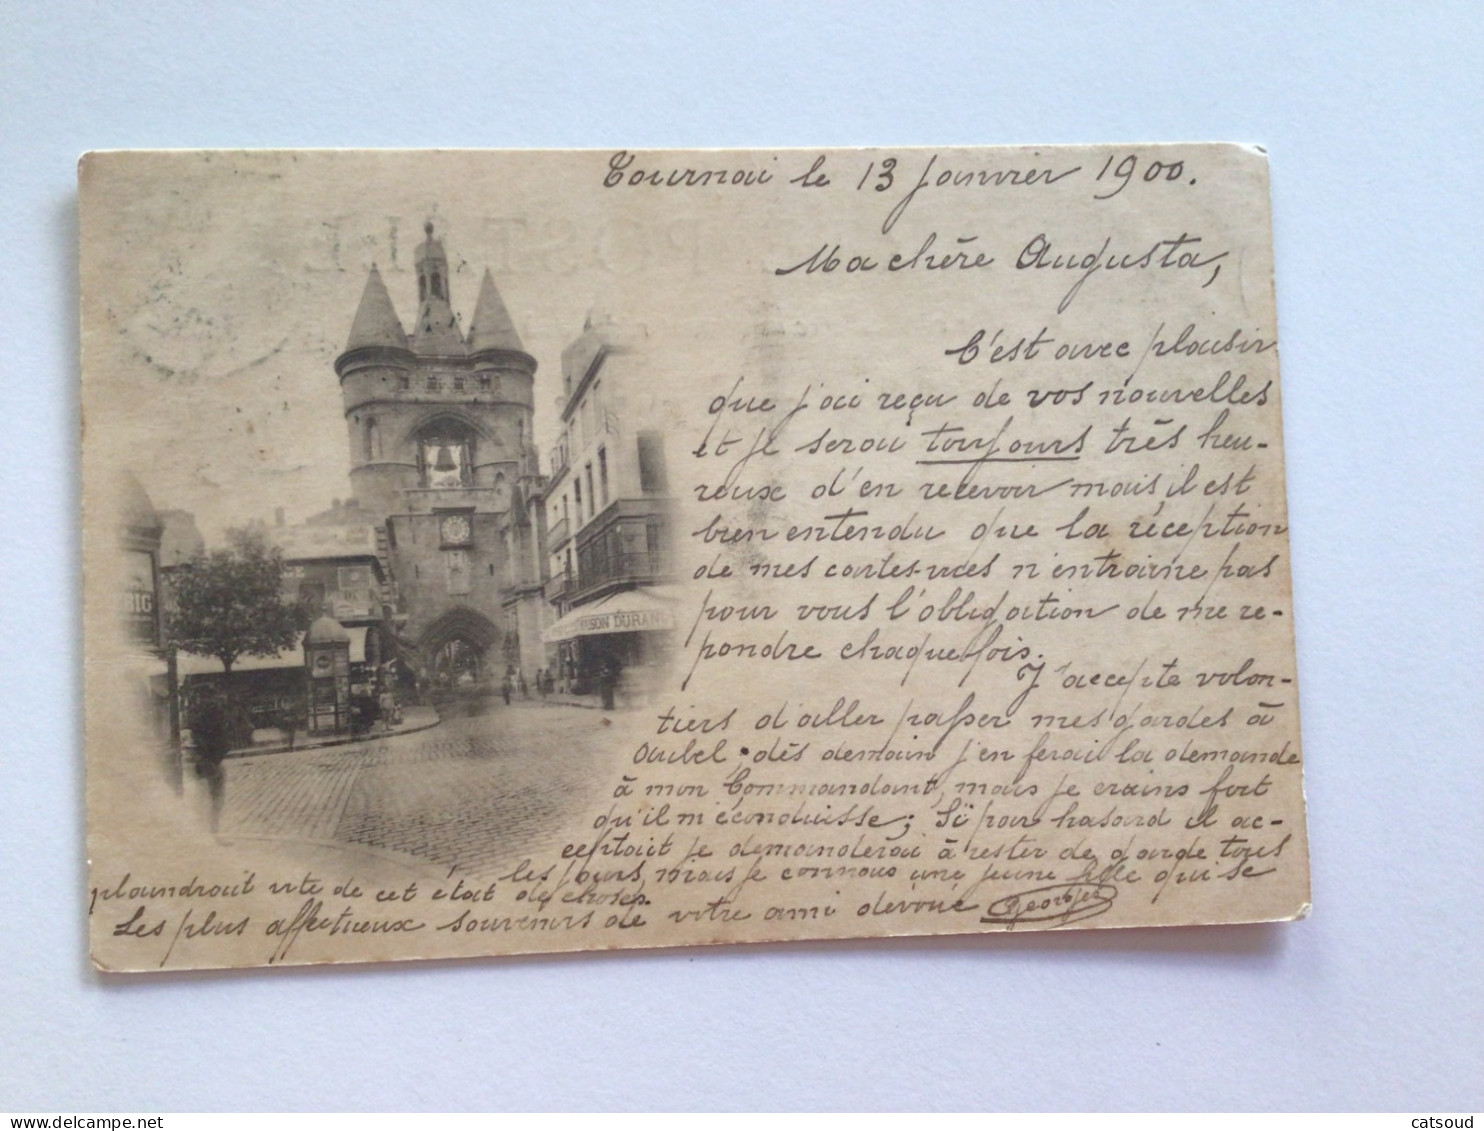 Tournai le 13 Janvier 1900.
Ma chère Augusta,
C'est avec plaisir
que j'ai reçu de vos nouvelles
et je serai toujours très heu-
reux d'en recevoir mais il est
bien entendu que la réception
de mes cartes-vues n'entraine pas
pour vous l'obligation de me re-
pondre chaque fois.
J'accepte volon-
tiers d'aller passer mes gardes à
Aubel; dès demain j'en ferai la demande
à mon Commandant, mais je crains fort
qu'il m'éconduisse; Si par hasard il ac-
ceptait je demanderai à rester de garde tous
les jours, mais je connais une jeune fille qui se
plaindrait vite de cet état de choses.
Les plus affectueux souvenirs de votre ami dévoué Georges
BIG
MAISON DURAN
catsoud